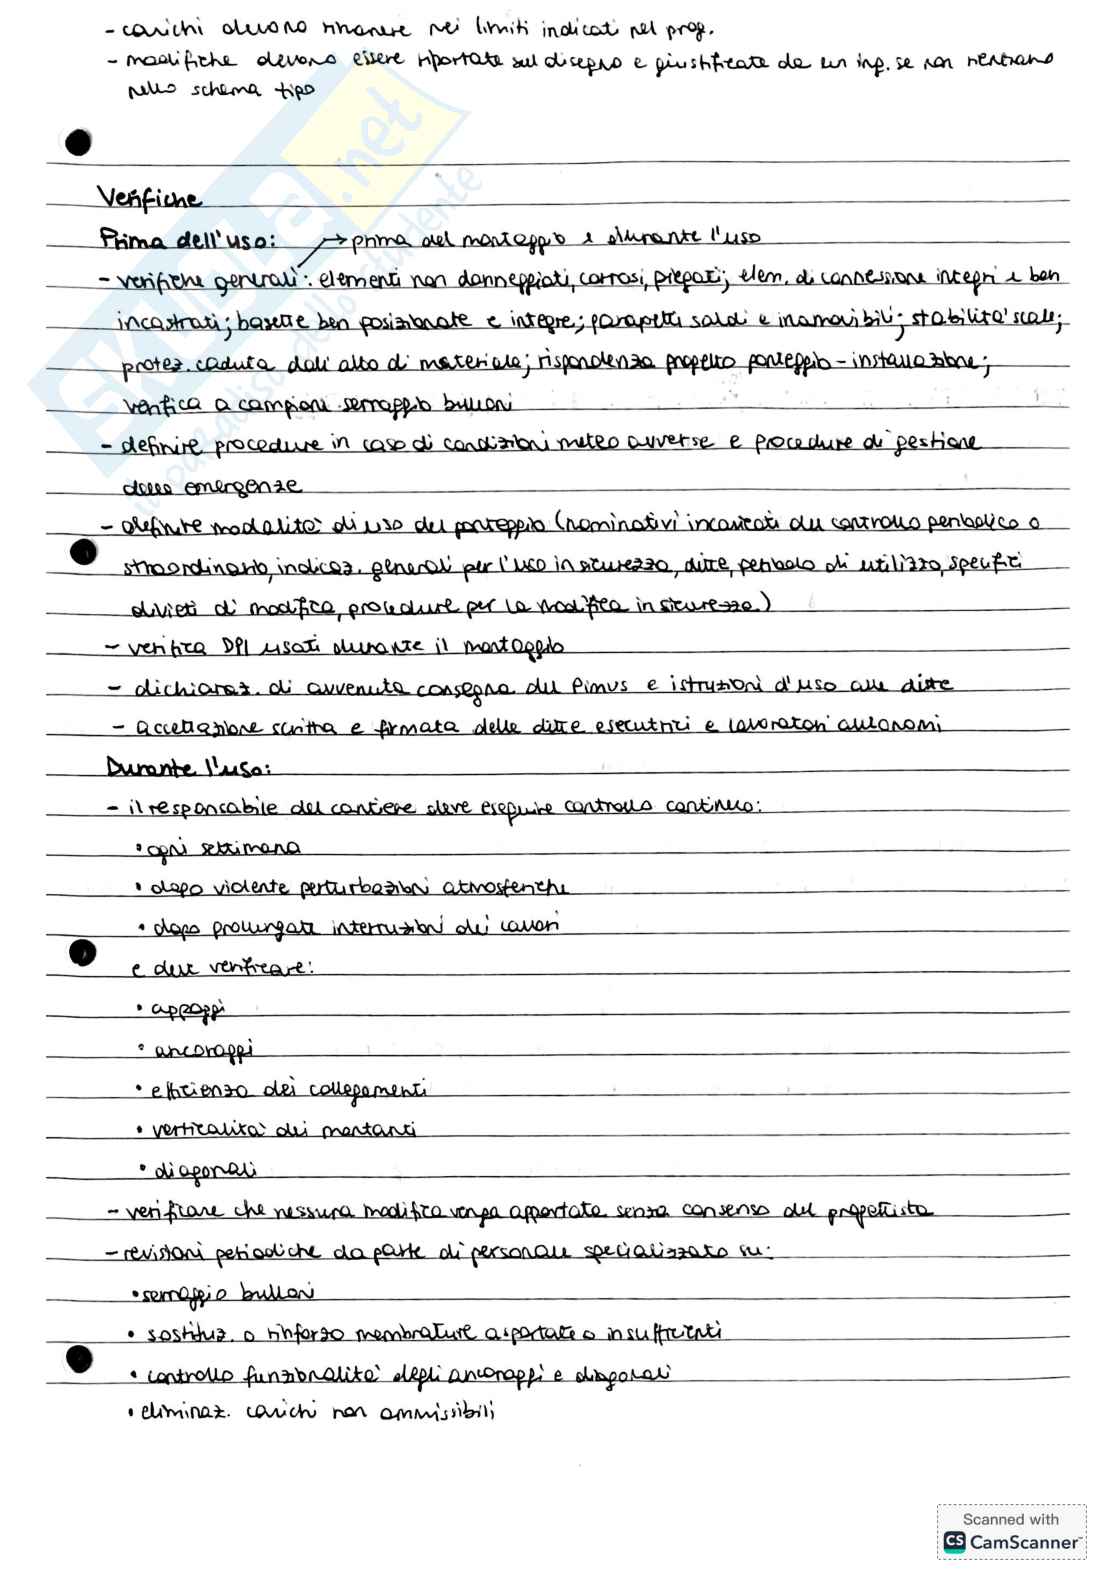 - carichi devono rimanere nei limiti indicati nel prog.
- modifiche devono essere riportate sul disegno e giustificate da un ing. se non rientrano
nello schema tipo
Verifiche
Prima dell'uso: → prima del montaggio e durante l'uso
- verifiche generali: elementi non danneggiati, corrosi, piegati; elem. di connessione integri e ben
incastrati; basette ben posizionate e integre; parapetti saldi e inamovibili; stabilità scale;
protez. caduta dall'alto di materiale; rispondenza progetto ponteggio - installazione;
verifica a campioni serraggio bulloni
- definire procedure in caso di condizioni meteo avverse e procedure di gestione
delle emergenze
- definite modalità di uso del ponteggio (nominativi incaricati du controllo periodico o
straordinario, indicaz. generali per l'uso in sicurezza, ditte, periodo di utilizzo, specifici
divieti di modifica, procedure per la modifica in sicurezza)
- verifica DPI usati durante il montaggio
- dichiaraz. di avvenuta consegna del Pimus e istruzioni d'uso alle ditte
- accettazione scritta e firmata delle ditte esecutrici e lavoratori autonomi
Durante l'uso:
- il responsabile del cantiere deve eseguire controllo continuo:
• ogni settimana
• dopo violente perturbazioni atmosferiche
• dopo prolungate interruzioni dei lavori
e deve verificare:
• appoggi
• ancoraggi
• efficienza dei collegamenti
• verticalità dei montanti
• diagonali
- verificare che nessuna modifica venga apportata senza consenso del progettista
- revisioni periodiche da parte di personale specializzato su:
• serraggio bulloni
• sostituz. o rinforzo membrature asportate o insufficienti
• controllo funzionalità degli ancoraggi e diagonali
• eliminaz. carichi non ammissibili
SKUOLA.net
il paradiso dello studente
Scanned with
CS CamScanner